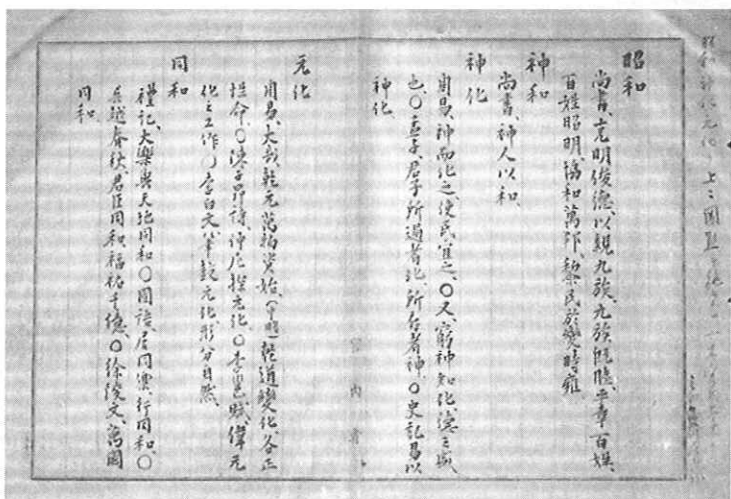 昭和神化元化ノ上ニ圏點ヲ
昭和
尚書、克明俊德、以親九族、九族既睦、平章百姓、
百姓昭明、協和萬邦、黎民於變時雍
神和
尚書、神人以和、
神化
周易、神而化之、使民宜之、〇又、窮神知化、德之盛
也、〇孟子、君子所過者化、所存者神、〇史記、易以
神化、
宮内省
元化
周易、大哉乾元、萬物資始、(中略)乾道變化、各正
性命、〇陳子昂詩、仲尼推元化、〇李邕賦、偉元
化之工作〇李白文、筆鼓元化、形分自然、
同和
禮記、大樂與天地同和〇國語、居同樂、行同和、〇
吳越春秋、君臣同和、福祐千億、〇徐陵文、萬國
同和、